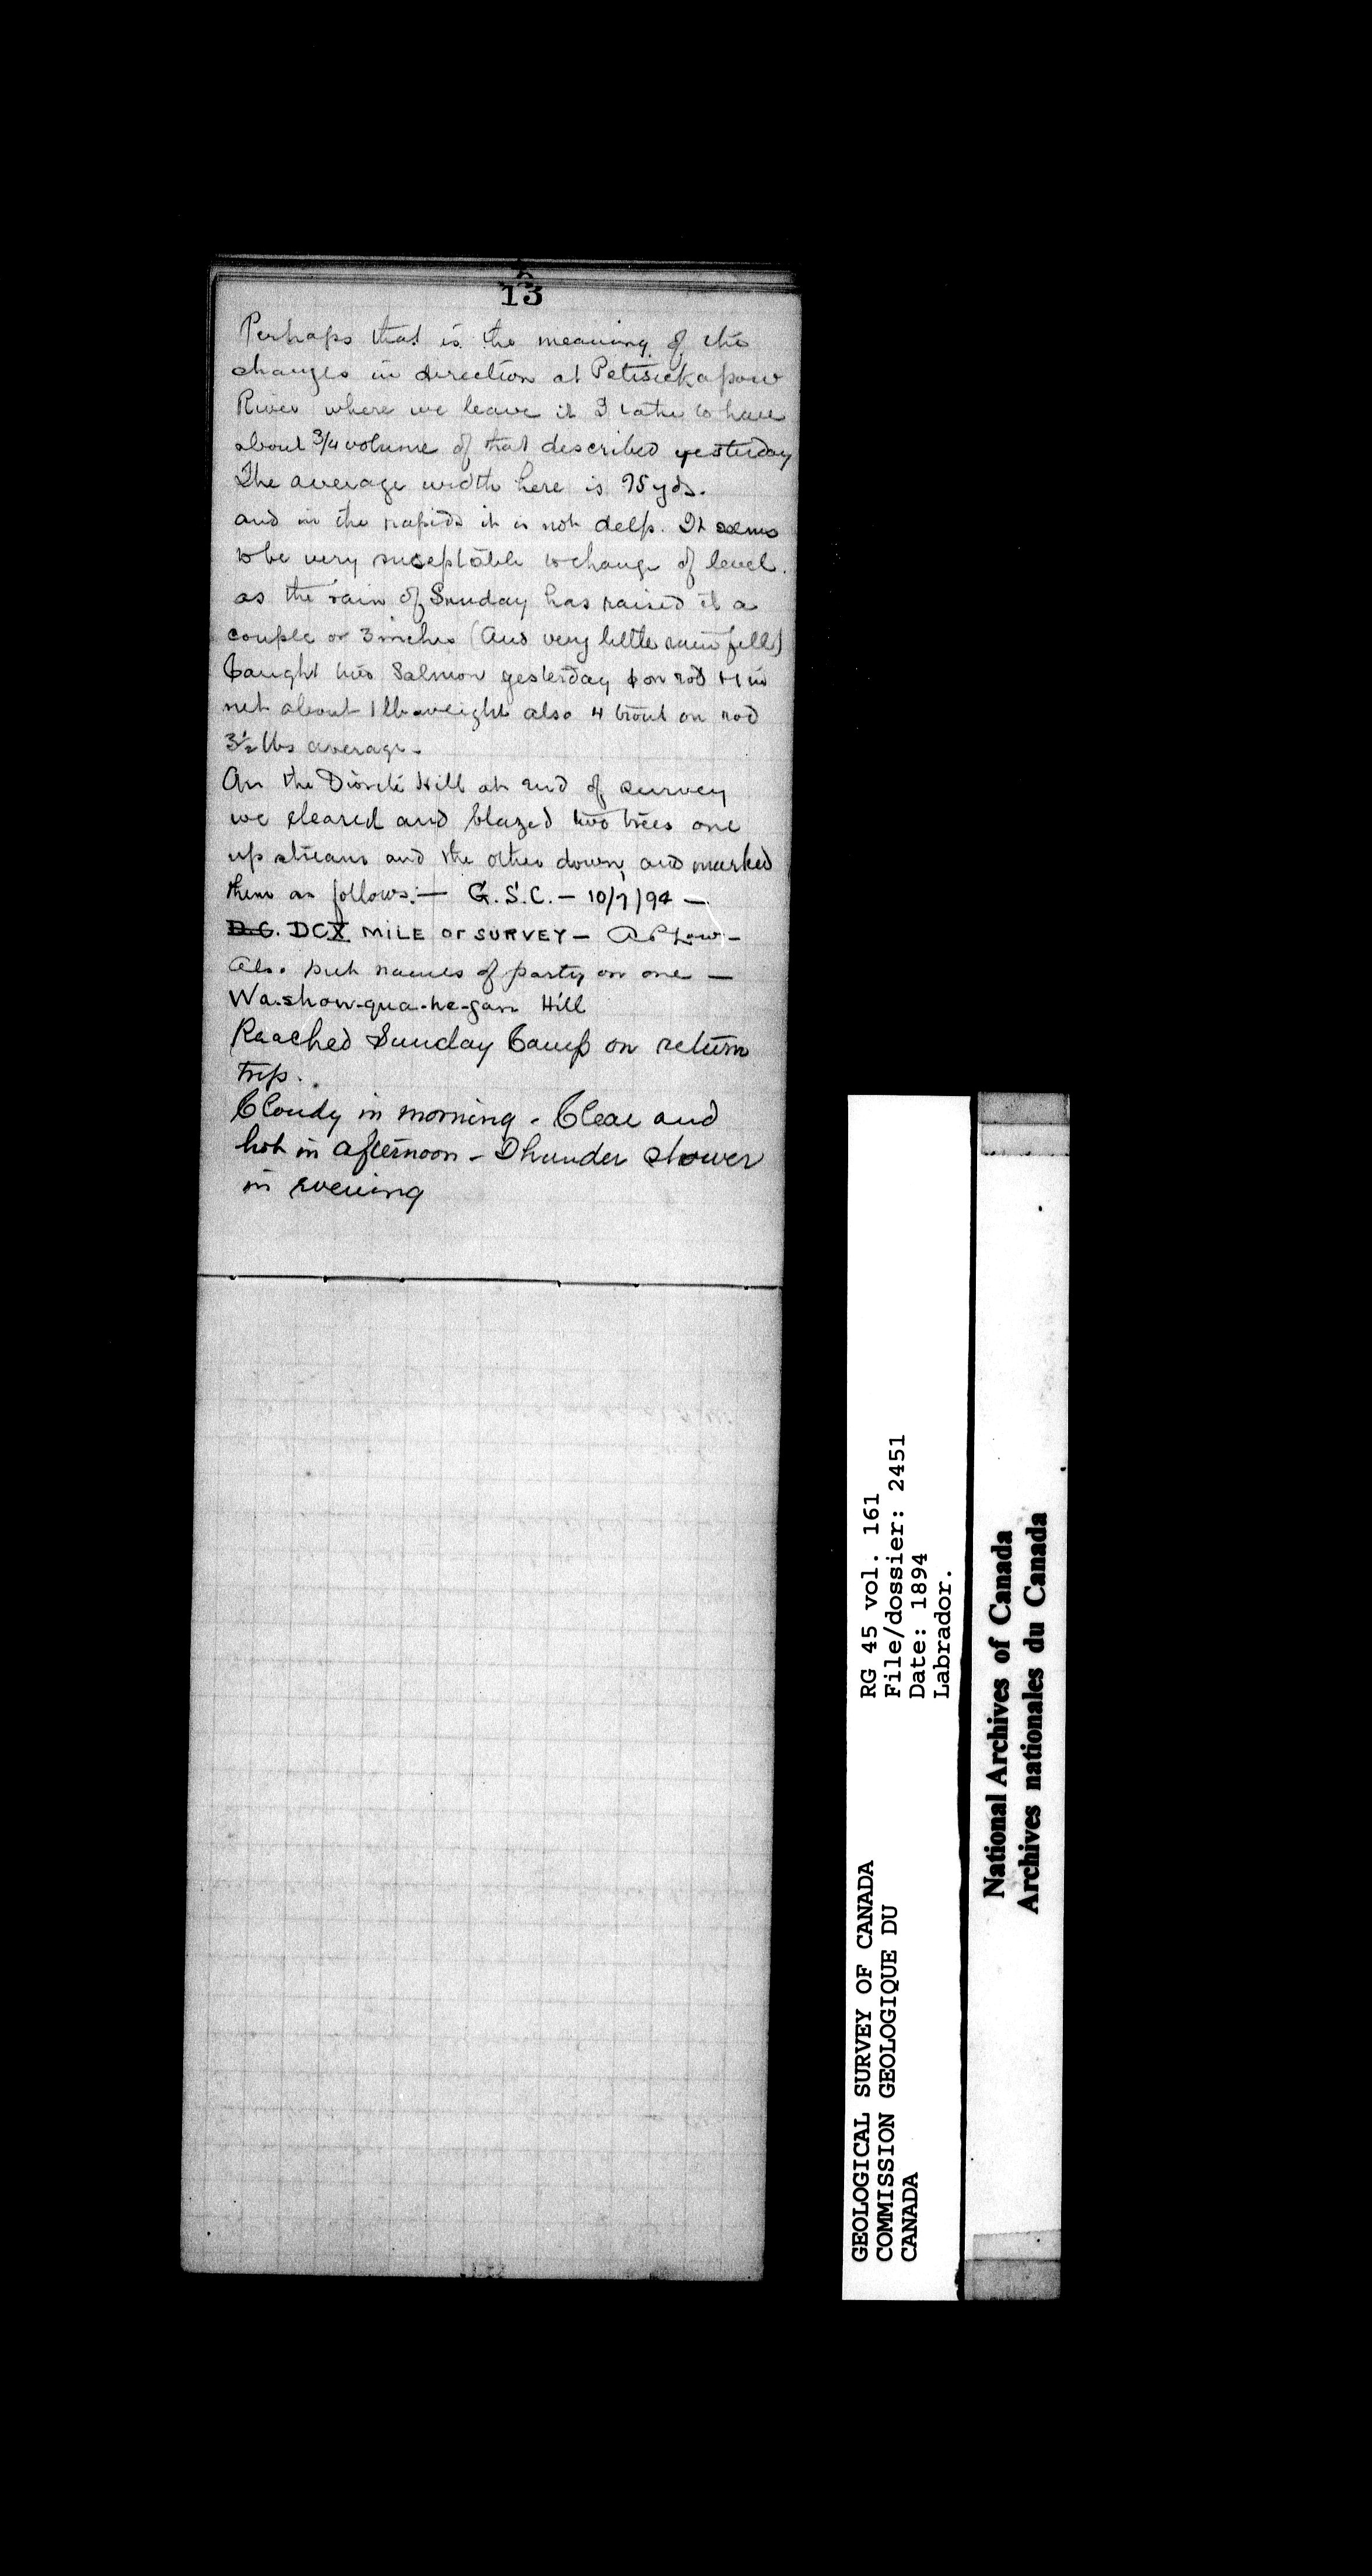 13
Perhaps that is the meaning of the
changes in direction at Petisickapow
River where we leave it I to have
about 3/4 volume of that described yesterday
The average width here is 75 yds.
and in the rapids it is not deep. It seems
to be very suceptable to change of level.
as the rain of Sunday has raised it a
couple or 3 inches (and very little rain fell)
Caught two Salmon yesterday 1 on rod + 1 in
net about 1 lb weight also 4 trout on rod
3½ lbs average.
On the Diorite Hill at end of survey
we cleared and blazed two trees one
up stream and the other down, and marked
them as follows:— G.S.C. — 10/7/94 —
D.C. DCX MILE OF SURVEY — A P Low —
Also put names of party on one —
Wa-show-qua-he-gan Hill
Reached Sunday Camp on return
trip.
Cloudy in morning - Clear and
hot in afternoon - Thunder shower
in evening
GEOLOGICAL SURVEY OF CANADA
COMMISSION GEOLOGIQUE DU
CANADA
RG 45 vol. 161
File/dossier: 2451
Date: 1894
Labrador.
National Archives of Canada
Archives nationales du Canada